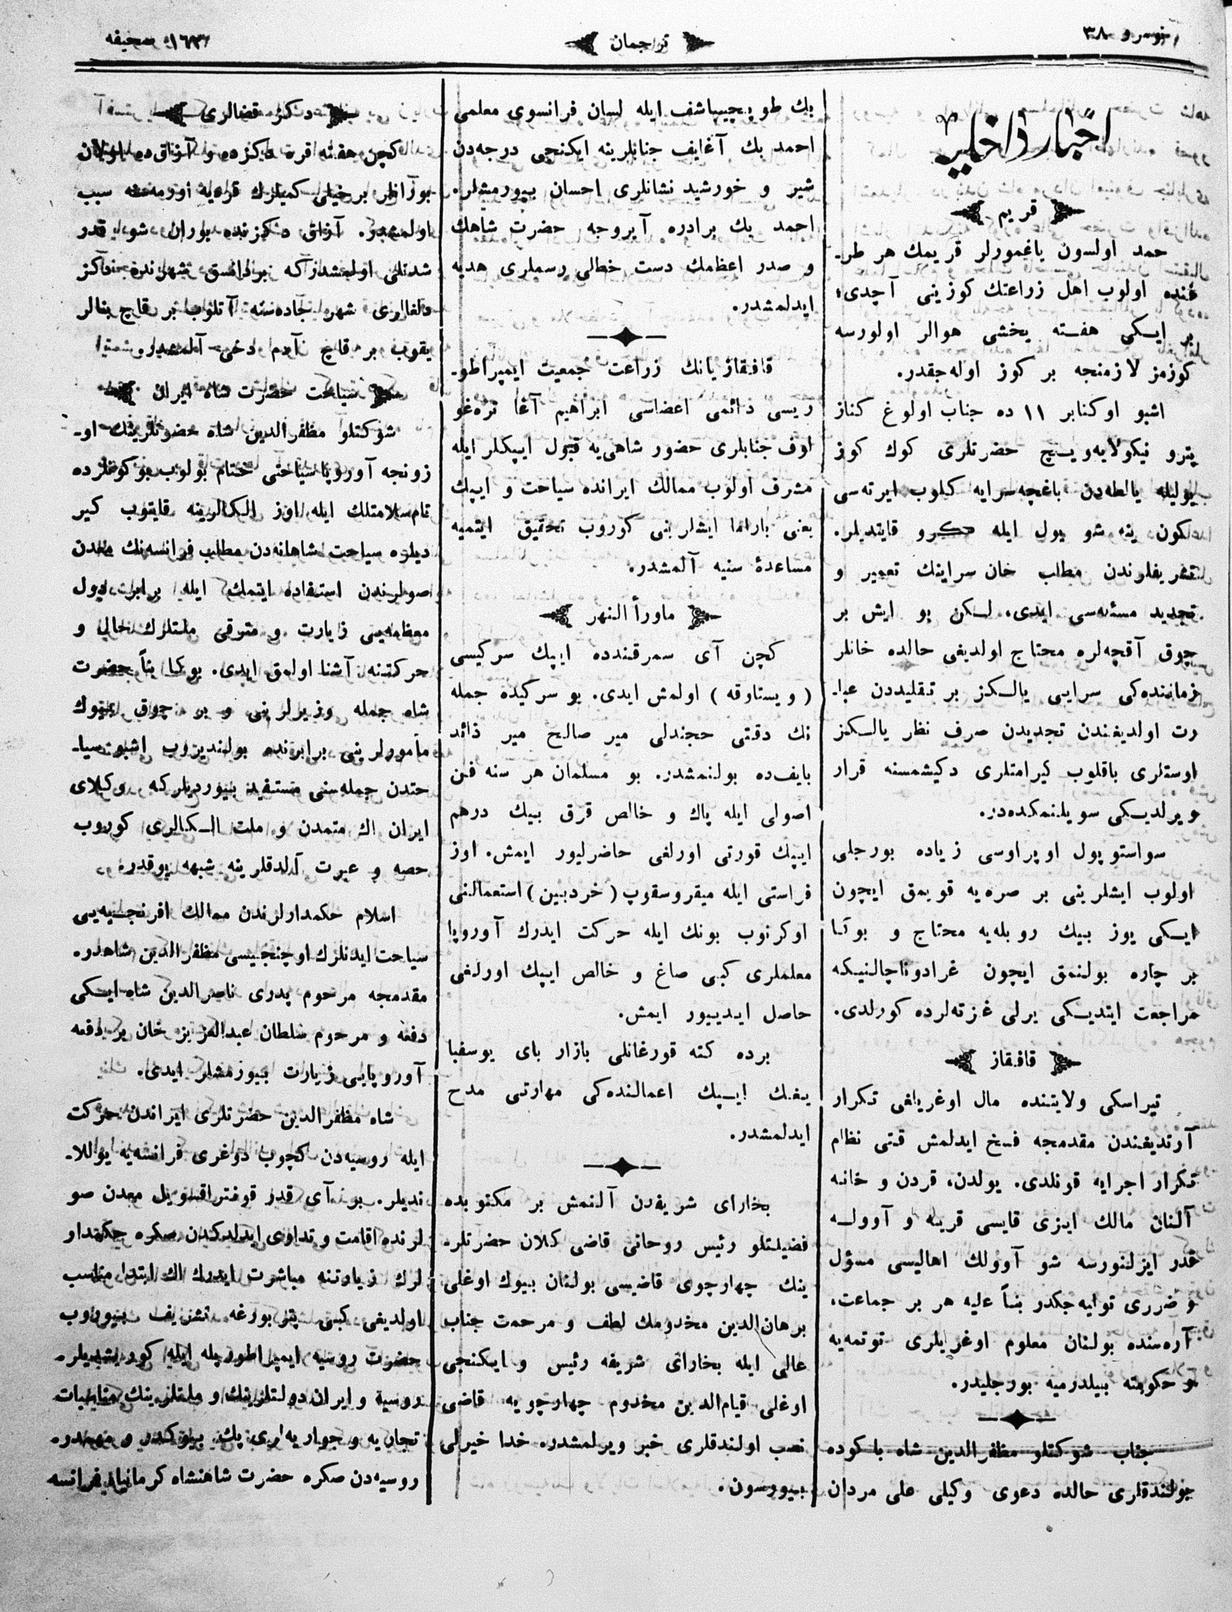 نومرو ٣٨
ترجمان
صحیفه
اخبار داخلیه
قریم
حمد اولسون یاغمورلر قریمك هر طر-
فنده اولوب اهل زراعتك كوزینی آچدی؛
بر ایكی هفته یخشی هوالر اولورسه
كوزمز لازمنجه بر كوز اوله‌جقدر.
اشبو اوكتابر ١١ ده جناب اولوغ كناز
پترو نیكولایه‌ویچ حضرتلری كوك كوز
یولیله یالطه‌دن باغچه‌سرایه كیلوب ایرته‌سی
كون ینه شو یول ایله كیرو قایتدیلر.
تشریفلرندن مطلب خان سراینك تعمیر و
تجدید مسئله‌سی ایدی. لكن بو ایش بر
چوق آقچه‌لره محتاج اولدیغی حالده خانلر
زماننده‌كی سرایی یالكز بر تقلیددن عبا-
رت اولدیغندن تجدیدن صرف نظر یالكز
اوستلری باقلوب كیرامتلری دكیشمسنه قرار
ویرلدیكی سویلنمكده‌در.
سواستوپول اوپراوسی زیاده بورجلی
اولوب ایشلرینی بر صره‌یه قویمق ایچون
ایكی یوز بیك روبله‌یه محتاج و بوكا
بر چاره بولنمق ایچون غرادوناچالنیكه
مراجعت ایتدیكی یرلی غزته‌لرده كورلدی.
قافقاز
تیراسكی ولایتنده مال اوغریلغی تكرار
آرتدیغندن مقدمجه فسخ ایدلمش قتی نظام
تكرار اجرایه قونلدی. یولدن، قردن و خانه
آلنان مالك ایزی قایسی قریه و آووله
قدر ایزلنورسه شو آوولك اهالیسی مسؤل
و ضرری تولیه‌جكدر بناً علیه هر بر جماعت،
آره‌سنده بولنان معلوم اوغریلری توتمه‌یه
و حكومته بیلدرمیه بورجلیدر.
جناب شوكتلو مظفرالدین شاه باكوده
بولندقلری حالده دعوی وكیلی علی مردان
بك طوپچیباشف ایله لسان فرانسوی معلمی
احمد بك آغایف جنابلرینه ایكنجی درجه‌دن
شیر و خورشید نشانلری احسان بیورمشلر.
احمد بك برادره آیروجه حضرت شاهك
و صدر اعظمك دست خطلی رسملری هدیه
ایدلمشدر.
قافقازیانك زراعت جمعیت ایمپراطو-
ریسی دائمی اعضاسی ابراهیم آغا
اوف جنابلری حضور شاهی‌یه قبول ایپكلر ایله
مشرف اولوب ممالك ایرانده سیاحت و ایپك
یعنی باراما ایشلرنی كوروب تحقیق ایتمیه
مساعدهٔ سنیه آلمشدر.
ماورأ النهر
كچن آی سمرقندده ایپك سركیسی
(ویستاوقه) اولمش ایدی. بو سركیده جمله
نك دقتی خجندلی میر صالح میر ذائد
بایف‌ده بولنمشدر. بو مسلمان هر سنه فن
اصولی ایله پاك و خالص قرق بیك درهم
ایپك قورتی اورلغی حاضرلیور ایمش. اوز
فراستی ایله میقروسقوپ (خردبین) استعمالنی
اوكرنوب بونك ایله حركت ایدرك آوروپا
معلملری كبی صاغ و خالص ایپك اورلغی
حاصل ایدییور ایمش.
برده كته قورغانلی بازار بای یوسفبا
یفنك ایپك اعمالنده‌كی مهارتی مدح
ایدلمشدر.
بخارای شریفدن آلنمش بر مكتوبده
فضیلتلو رئیس روحانی قاضی كلان حضرتلر-
ینك چهارچوی قاضیسی بولنان بیوك اوغلی
برهان‌الدین مخدومك لطف و مرحمت جناب
عالی ایله بخارای شریفه رئیس و ایكنجی
اوغلی قیام‌الدین مخدوم چهارچویه قاضی
نصب اولندقلری خبر ویرلمشدر. خدا خیرلی
بییورسون.
دكز قضالری
كچن هفته قره دكزده و آزاق‌ده اولان
بورانلر برخیلی كمیلرك قرایه اورمه‌سنه سبب
اولمشدر. آزاق دكزنده بوران شو قدر
شدتلی اولمشدركه بردانسق شهرنده دكز
دالغالری شهر جاده‌سنه آتلوب بر قاچ بنالر
یقوب بر قاچ آدم دخی آلمشدر
سیاحت حضرت شاه ایران
شوكتلو مظفرالدین شاه حضرتلرینك او-
زونجه آوروپا سیاحتی ختام بولوب بو كونلرده
تام‌سلامتلك ایله اوز الكالرینه قایتوب كیر
دیلر. سیاحت شاهانه‌دن مطلب فرانسه‌نك معدن
صولرندن استفاده ایتمك ایله برابر دول
معظمه‌یی زیارت و شرقی ملتلرك حال و
حركتنه آشنا اولمق ایدی. بوكا بناً حضرت
شاه جمله وزیرلرینی و بر چوق بیوك
مأمورلرینی برابرنده بولندیروب اشبو سیا-
حتدن جمله‌سنی مستفید بیوردیلركه وكلای
ایران اك متمدن و ملت الكالری كوروب
حصه و عبرت آلدقلرینه شبهه یوقدر.
اسلام حكمدارلرندن ممالك افرنجیه‌یی
سیاحت ایدنلرك اوچنجیسی مظفرالدین شاهدر.
مقدمجه مرحوم پدری ناصرالدین شاه ایكی
دفعه و مرحوم سلطان عبدالعزیز خان بر دفعه
آوروپایی زیارت بیورمشلر ایدی.
شاه مظفرالدین حضرتلری ایراندن حركت
ایله روسیه‌دن كچوب دوغری فرانسه‌یه یوللا-
ندیلر. بر آی قدر قونتراقسویل معدن صو
لرنده اقامت و تداوی ایدلدكدن صكره حكمدار
لرك زیارتنه مباشرت ایدرك اك ابتدا مناسب
اولدیغی كبی پتربورغه تشریف بیوروب
حضرت روسیه ایمپراطوریله ایله كورشدیلر.
روسیه و ایران دولتلرینك و ملتلرینك مناسبات
تجاریه و جواریه‌لری پك بیوكدر و مهمدر.
روسیه‌دن صكره حضرت شاهنشاه كرمانیا، فرانسه